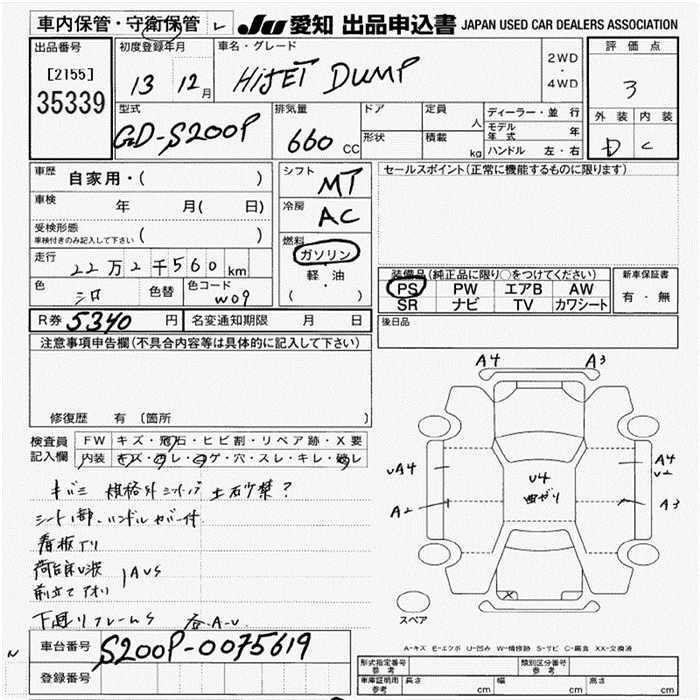 車内保管・守衛保管 レ JU 愛知 出品申込書 JAPAN USED CAR DEALERS ASSOCIATION
出品番号
[2155]
35339
初度登録年月
13 12月
車名・グレード
HiJET DUMP
2WD
・
4WD
評価点
3
外装 内装
D C
型式
GD-S200P
排気量
660 CC
ドア
形状
定員 人
積載 kg
ディーラー・並行
モデル年式 年
ハンドル 左・右
車歴 自家用・( )
車検 年 月( 日)
受検形態
車検付きのみ記入して下さい ( )
走行 22万2千560km
色 シロ 色替 色コード W09
R券 5340 円 名変通知期限 月 日
シフト MT
冷房 AC
燃料
ガソリン
軽・油
( )
セールスポイント(正常に機能するものに限ります)
装備品(純正品に限り○をつけてください)
PS PW エアB AW
SR ナビ TV カワシート
新車保証書
有・無
後日品
注意事項申告欄(不具合内容等は具体的に記入して下さい)
修復歴 有 〔箇所
検査員記入欄
FW キズ・飛石・ヒビ割・リペア跡・X要
内装 キズ・ヨレ・コゲ・穴・スレ・キレ・破レ
キバミ 規格外シートバ 土砂禁?
シート1部、ハンドルカバー付
看板アリ
荷台床U波
前立てアオリ
下廻りフレームS
車台番号 S200P-0075619
登録番号
A4 A3
UA4
A2
U4
曲がり
A4
U2
A3
X
スペア
A-キズ E-エクボ U-凹み W-補修跡 S-サビ C-腐食 XX-交換済
型式指定番号
参考
類別区分番号
参考
車庫証明用
参考
長さ cm 幅 cm 高さ cm